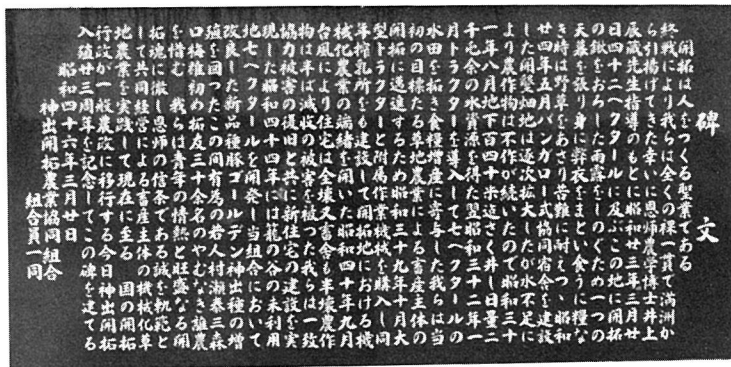 碑文
開拓は人をつくる聖業である
終戦により我らは全くの裸一貫で満洲か
ら引揚げてきた幸いに恩師農学博士井上
辰蔵先生指導のもとに昭和廿三年三月廿
日四十二ヘクタールに及ぶこの地に開拓
の鍬をおろした雨露をしのぐため一つの
天幕を張り身に弊衣をまとい食うに糧な
き時は野草をあさり苦難に耐えつゝ昭和
廿四年五月バンガロー式協同宿舎を建設
した開墾畑地は逐次拡大したが水不足に
より農作物は不作が続いたので昭和三十
一年八月地下百四十米迄さく井し日量二
千屯余の水資源を得た翌昭和三十二年一
月トラクターを導入して七ヘクタールの
水田を拓き食糧増産に寄与した我らは当
初の目標たる草地農業による畜産主体の
開拓に邁進するため昭和三十九年十月大
型トラクターと附属作業機械を購入し同
年搾乳所をも建設して開拓地における機
械化農業の端緒を開いた昭和四十年九月
台風により住宅は全壊又畜舎も半壊農作
物は半ば減収の被害を被った我らは一致
協力被害の復旧と共に新住宅の建設を実
現した昭和四十四年には籠の谷の未利用
地七ヘクタールを開発し当組合において
改良した新品種豚ゴールデン神出種の増
殖を図ったこの間有為の若人村瀬泰三森
口梅 初め拓友三十余名のやむなき離農
を惜む　我らは青年の情熱と旺盛なる開
拓魂に徹し恩師の信条である誠を軌範と
して共同経営による畜産主体の機械化草
地農業を実践して現在に至る　国の開拓
行政が一般農政に移行する今日神出開拓
入殖廿三周年を記念してこの碑を建てる
昭和四十六年三月廿日
神出開拓農業協同組合
組合員一同